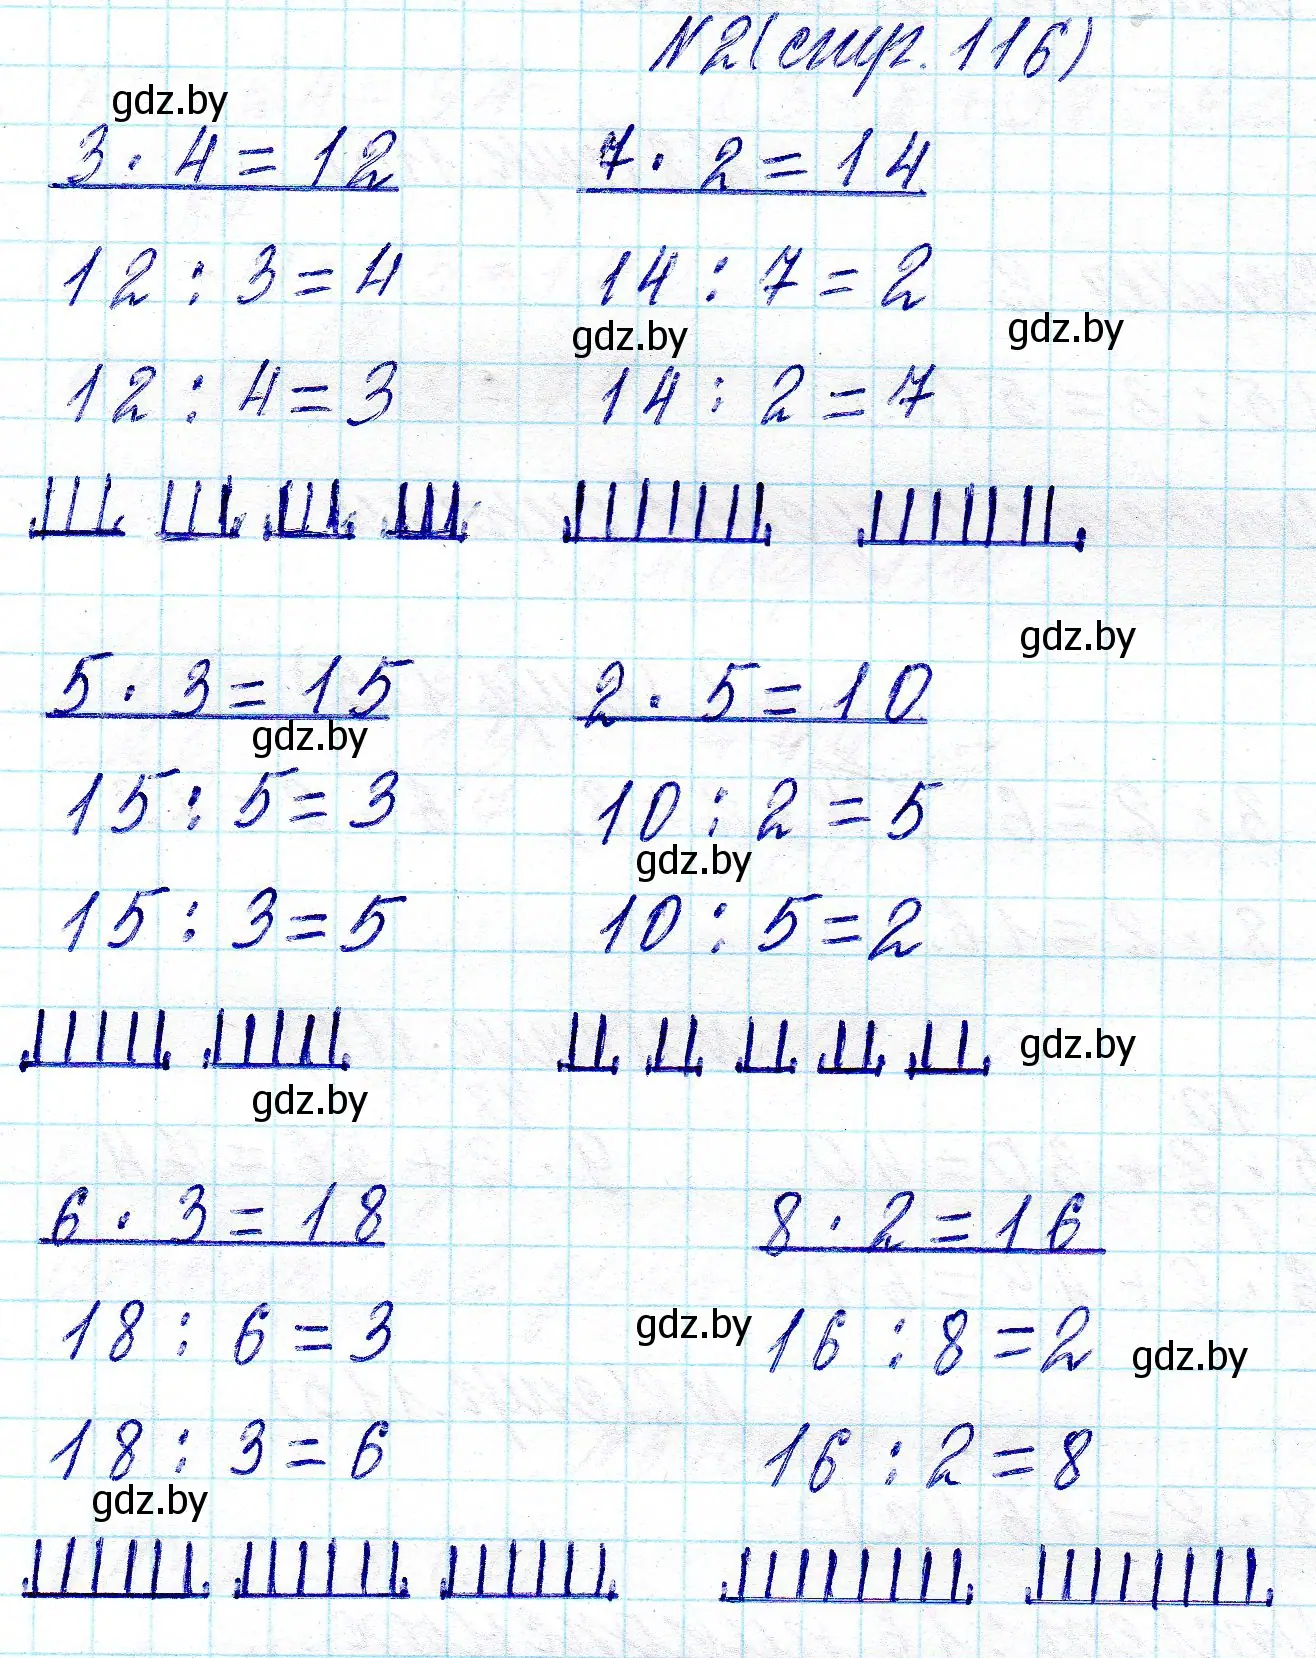 N2(стр. 116)
gdz.by
3 · 4 = 12 7 · 2 = 14
12 : 3 = 4 14 : 7 = 2
gdz.by gdz.by
12 : 4 = 3 14 : 2 = 7
gdz.by
5 · 3 = 15 2 · 5 = 10
gdz.by
15 : 5 = 3 10 : 2 = 5
gdz.by
15 : 3 = 5 10 : 5 = 2
gdz.by
gdz.by
6 · 3 = 18 8 · 2 = 16
18 : 6 = 3 gdz.by 16 : 8 = 2 gdz.by
18 : 3 = 6 16 : 2 = 8
gdz.by